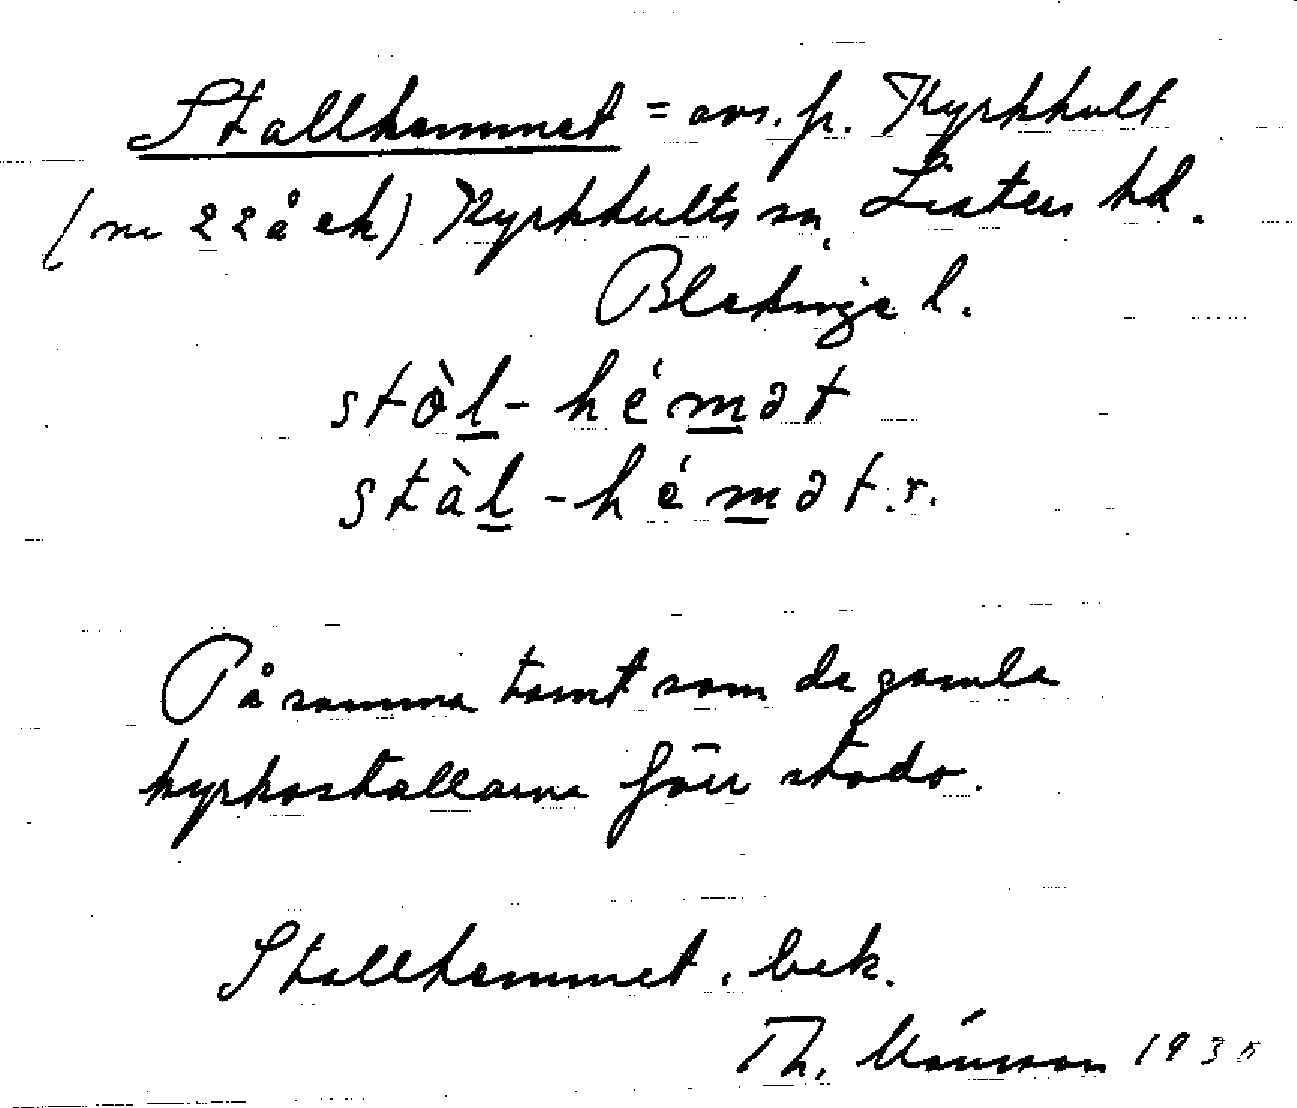 Stallhemmet = avs. fr. Kyrkhult
(nr 22 å ek) Kyrkhults sn, Listers hd.
Blekinge l.
stò̀l-hémət
stàl-hémət.r.
På samma tomt som de gamla
kyrkostallarna förr stodo.
Stallhemmet, bek.
Th. Månsson 1935